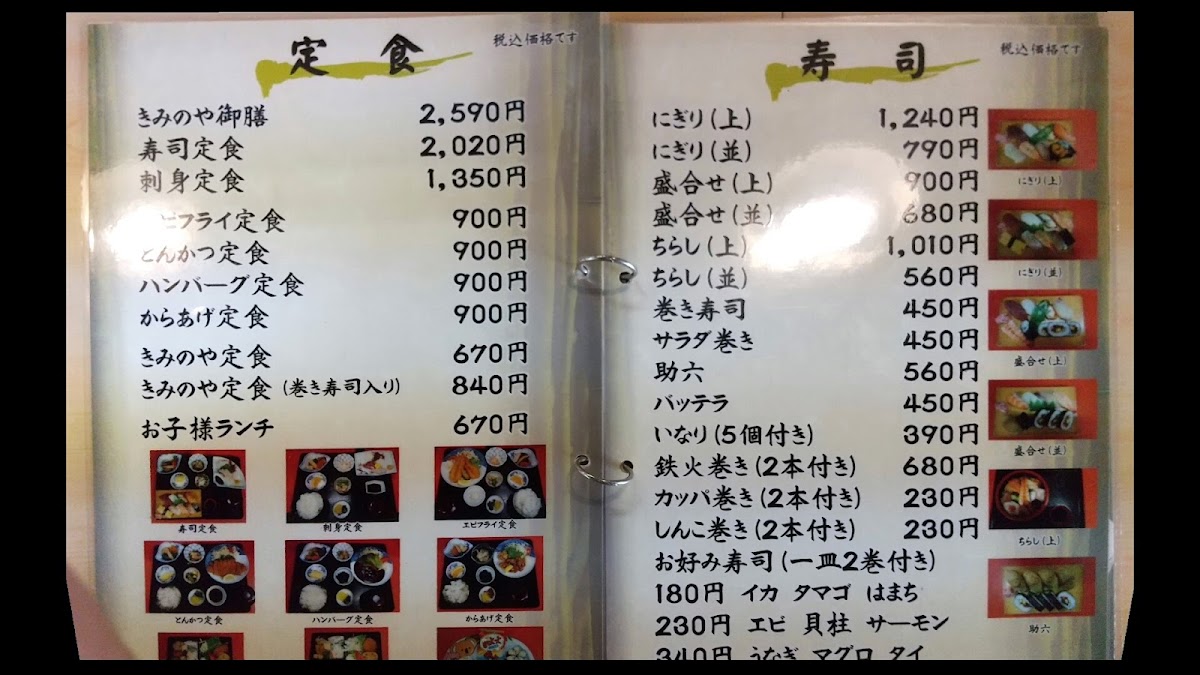 定 食
税込価格です
きみのや御膳 2,590円
寿司定食 2,020円
刺身定食 1,350円
エビフライ定食 900円
とんかつ定食 900円
ハンバーグ定食 900円
からあげ定食 900円
きみのや定食 670円
きみのや定食 (巻き寿司入り) 840円
お子様ランチ 670円
寿司定食
刺身定食
エビフライ定食
とんかつ定食
ハンバーグ定食
からあげ定食
寿 司
税込価格です
にぎり(上) 1,240円
にぎり(並) 790円
盛合せ(上) 900円
盛合せ(並) 680円
ちらし(上) 1,010円
ちらし(並) 560円
巻き寿司 450円
サラダ巻き 450円
助六 560円
バッテラ 450円
いなり(5個付き) 390円
鉄火巻き(2本付き) 680円
カッパ巻き(2本付き) 230円
しんこ巻き(2本付き) 230円
お好み寿司(一皿2巻付き)
180円 イカ タマゴ はまち
230円 エビ 貝柱 サーモン
340円 うなぎ マグロ タイ
にぎり(上)
にぎり(並)
盛合せ(上)
盛合せ(並)
ちらし(上)
助六